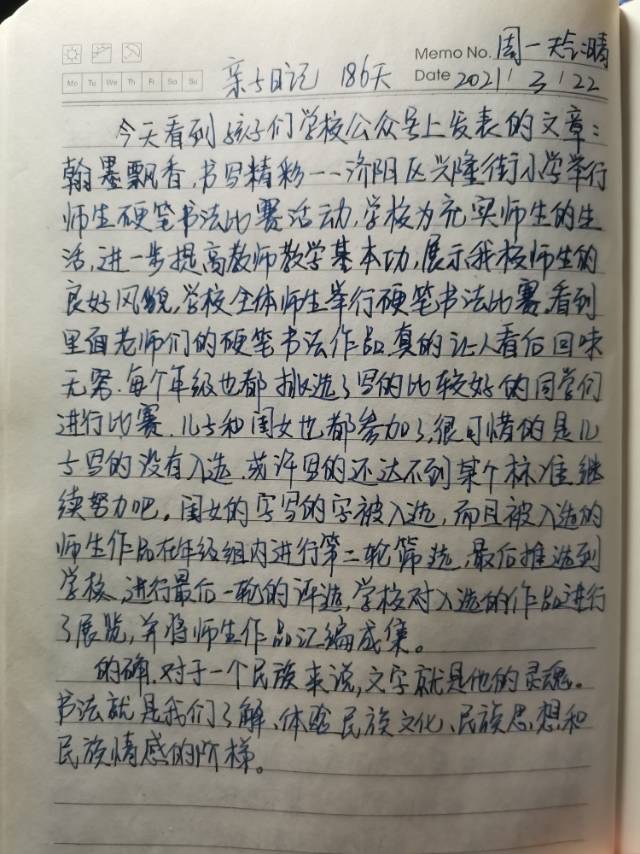 Memo No. 周一天气:晴
Mo Tu We Th Fr Sa Su
亲子日记 186天 Date 2021/3/22
今天看到孩子们学校公众号上发表的文章:
翰墨飘香,书写精彩——济阳区兴隆街小学举行
师生硬笔书法比赛活动,学校为充实师生的生
活,进一步提高教师教学基本功,展示我校师生的
良好风貌,学校全体师生举行硬笔书法比赛,看到
里面老师们的硬笔书法作品真的让人看后回味
无穷.每个年级也都挑选了写的比较好的同学们
进行比赛.儿子和闺女也都参加了,很可惜的是儿
子写的没有入选,或许写的还达不到某个标准,继
续努力吧。闺女的字写的字被入选,而且被入选的
师生作品在年级组内进行第二轮筛选,最后推选到
学校,进行最后一轮的评选,学校对入选的作品进行
了展览,并将师生作品汇编成集。
的确,对于一个民族来说,文字就是他的灵魂。
书法就是我们了解、体验民族文化、民族思想和
民族情感的阶梯。